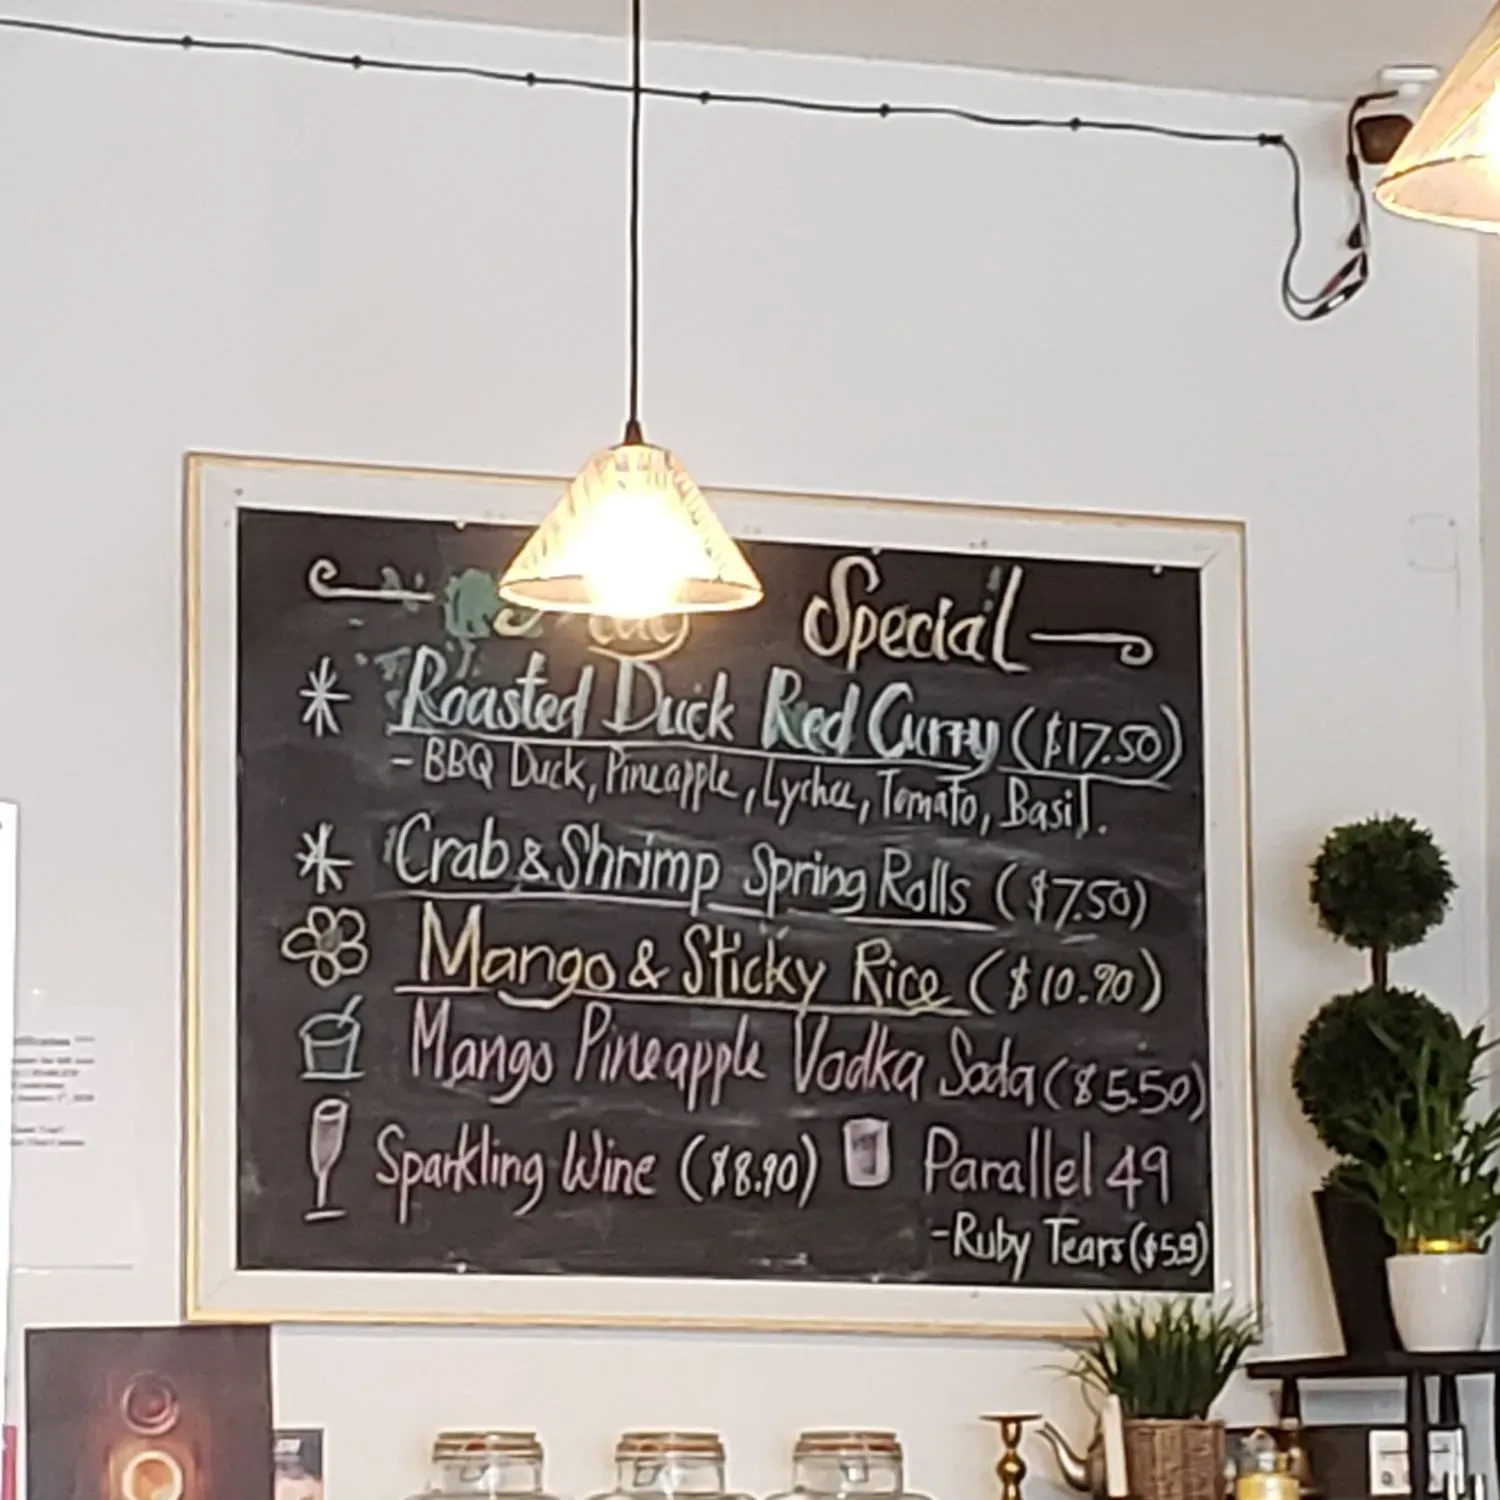 Special
Roasted Duck Red Curry ($17.50)
- BBQ Duck, Pineapple, Lychee, Tomato, Basil.
Crab & Shrimp Spring Rolls ($7.50)
Mango & Sticky Rice ($10.90)
Mango Pineapple Vodka Soda ($5.50)
Sparkling Wine ($8.90) Parallel 49
- Ruby Tears ($5.9)